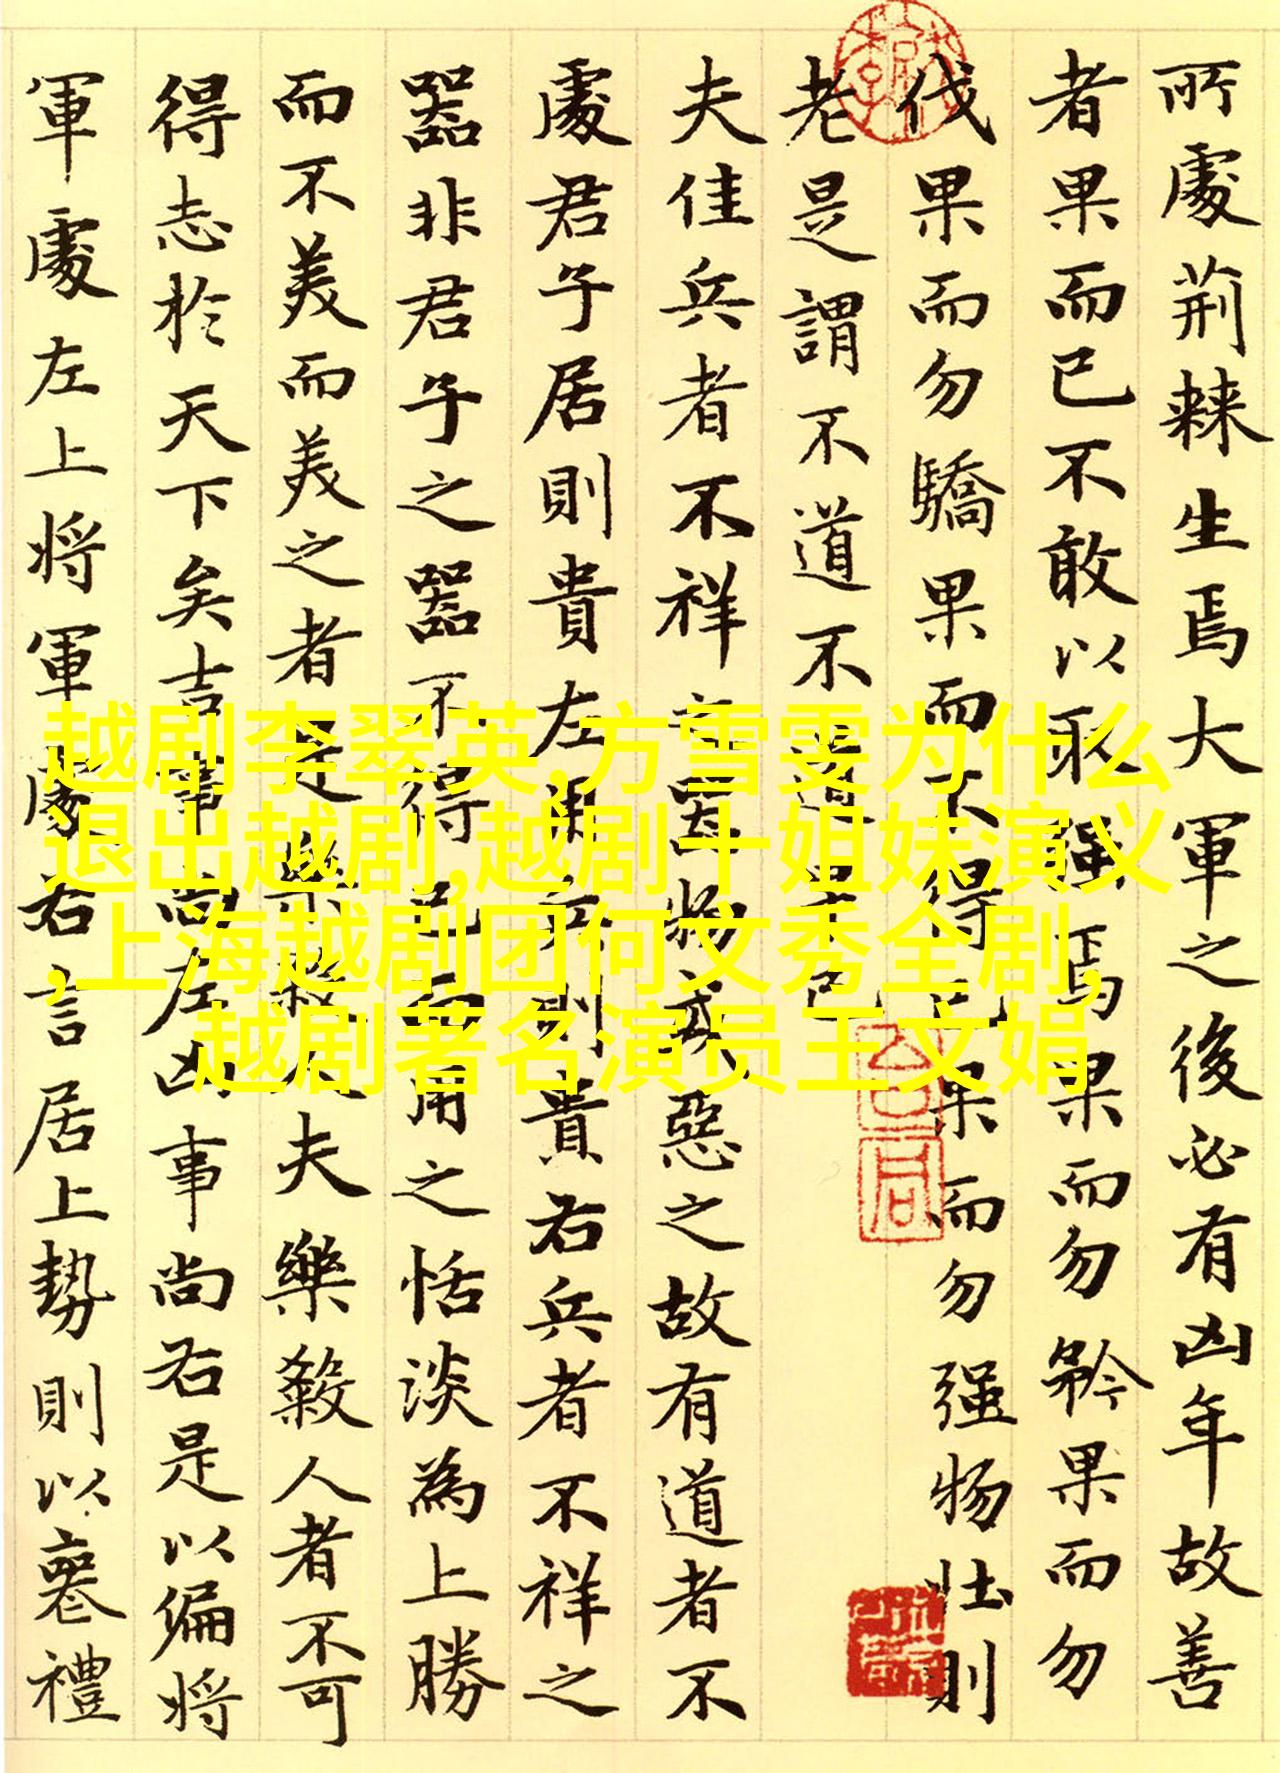 所處荊棘生焉大軍之後必有凶年故善
者果而已不敢以取强焉果而勿矜果而勿
伐果而勿驕果而不得已果而勿强物壯則
老是謂不道不道早已
夫佳兵者不祥之器物或惡之故有道者不
處君子居則貴左用兵則貴右兵者不祥之
器非君子之器不得已而用之恬淡為上勝
而不美而美之者是樂殺人夫樂殺人者不可
得志於天下矣吉事尚左凶事尚右是以偏將
軍處左上將軍處右言居上勢則以喪禮
越剧李翠英,方雪雯为什么
退出越剧,越剧十姐妹演义
,上海越剧团何文秀全剧,
越剧著名演员王文娟